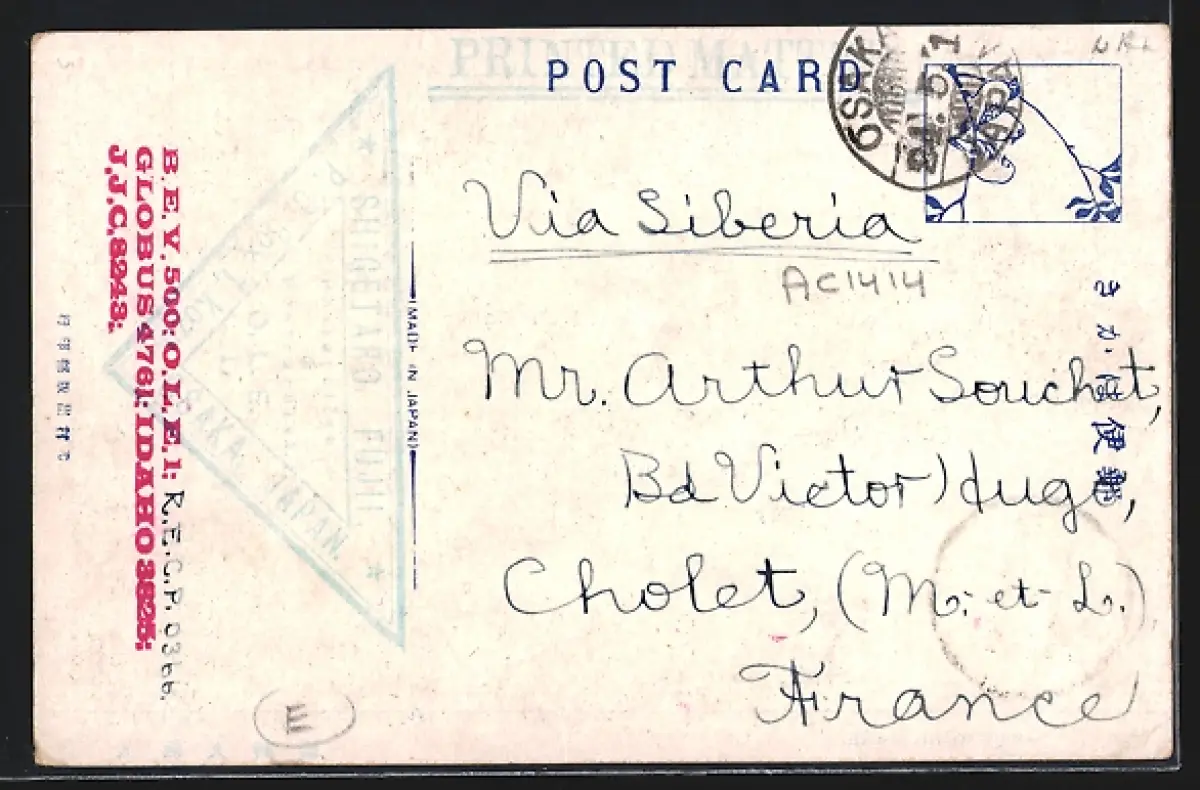 PRINTED MATTER
POST CARD
OSAKA
JAPAN
Via Siberia
AC1414
Mr. Arthur Souchet,
Bd Victor Hugo,
Cholet, (M. et L.)
France
きか は 便郵
(MADE IN JAPAN)
* SHIGETARO FUJII *
OSAKA, JAPAN.
B.E.V, 500; O.L.E, 1; R.E.C.P. 0366.
GLOBUS 4761; IDAHO 3825;
J.J.C, 8248;
E